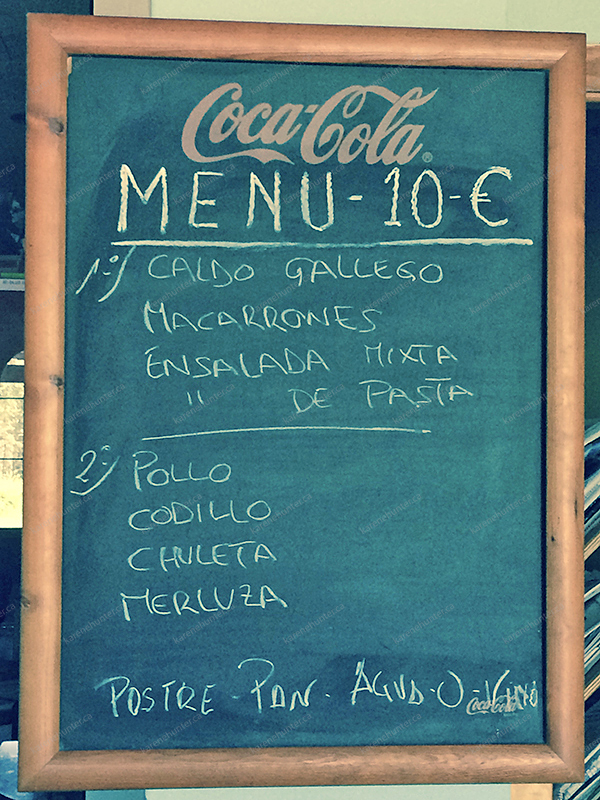 Coca-Cola®
MENU-10-€
1º) CALDO GALLEGO
MACARRONES
ENSALADA MIXTA
" DE PASTA
2º) POLLO
CODILLO
CHULETA
MERLUZA
POSTRE PAN. AGUA-O-VINO
Coca-Cola